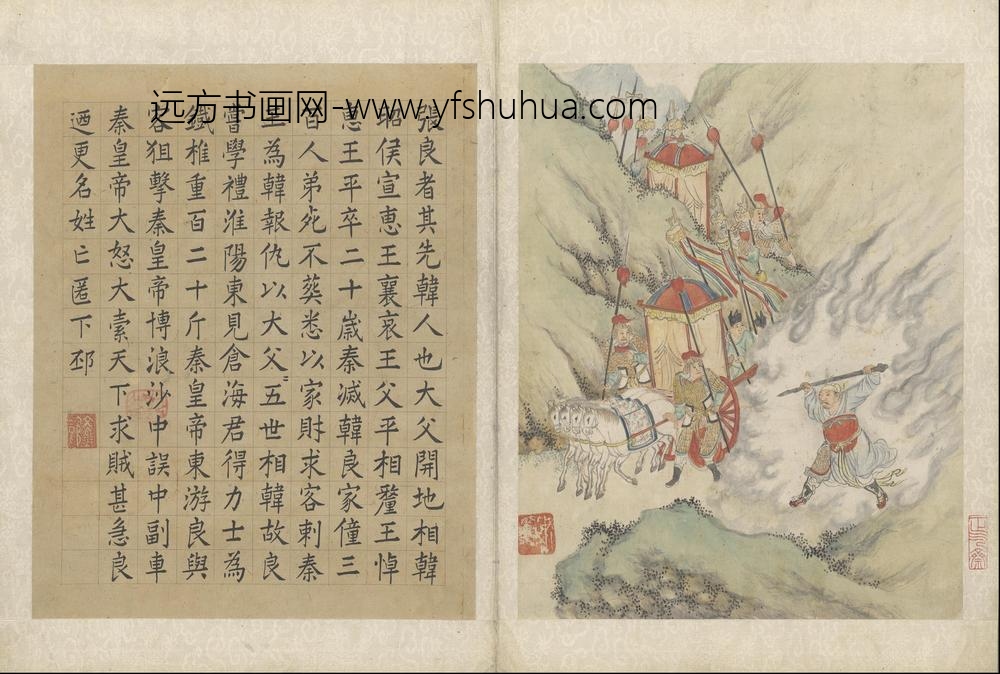 远方书画网-www.yfshuhua.com
張良者其先韓人也大父開地相韓
昭侯宣惠王襄哀王父平相釐王悼
惠王平卒二十歲秦滅韓良家僮三
百人弟死不葬悉以家財求客刺秦
王為韓報仇以大父〻五世相韓故良
嘗學禮淮陽東見倉海君得力士為
鐵椎重百二十斤秦皇帝東游良與
客狙擊秦皇帝博浪沙中誤中副車
秦皇帝大怒大索天下求賊甚急良
迺更名姓亡匿下邳